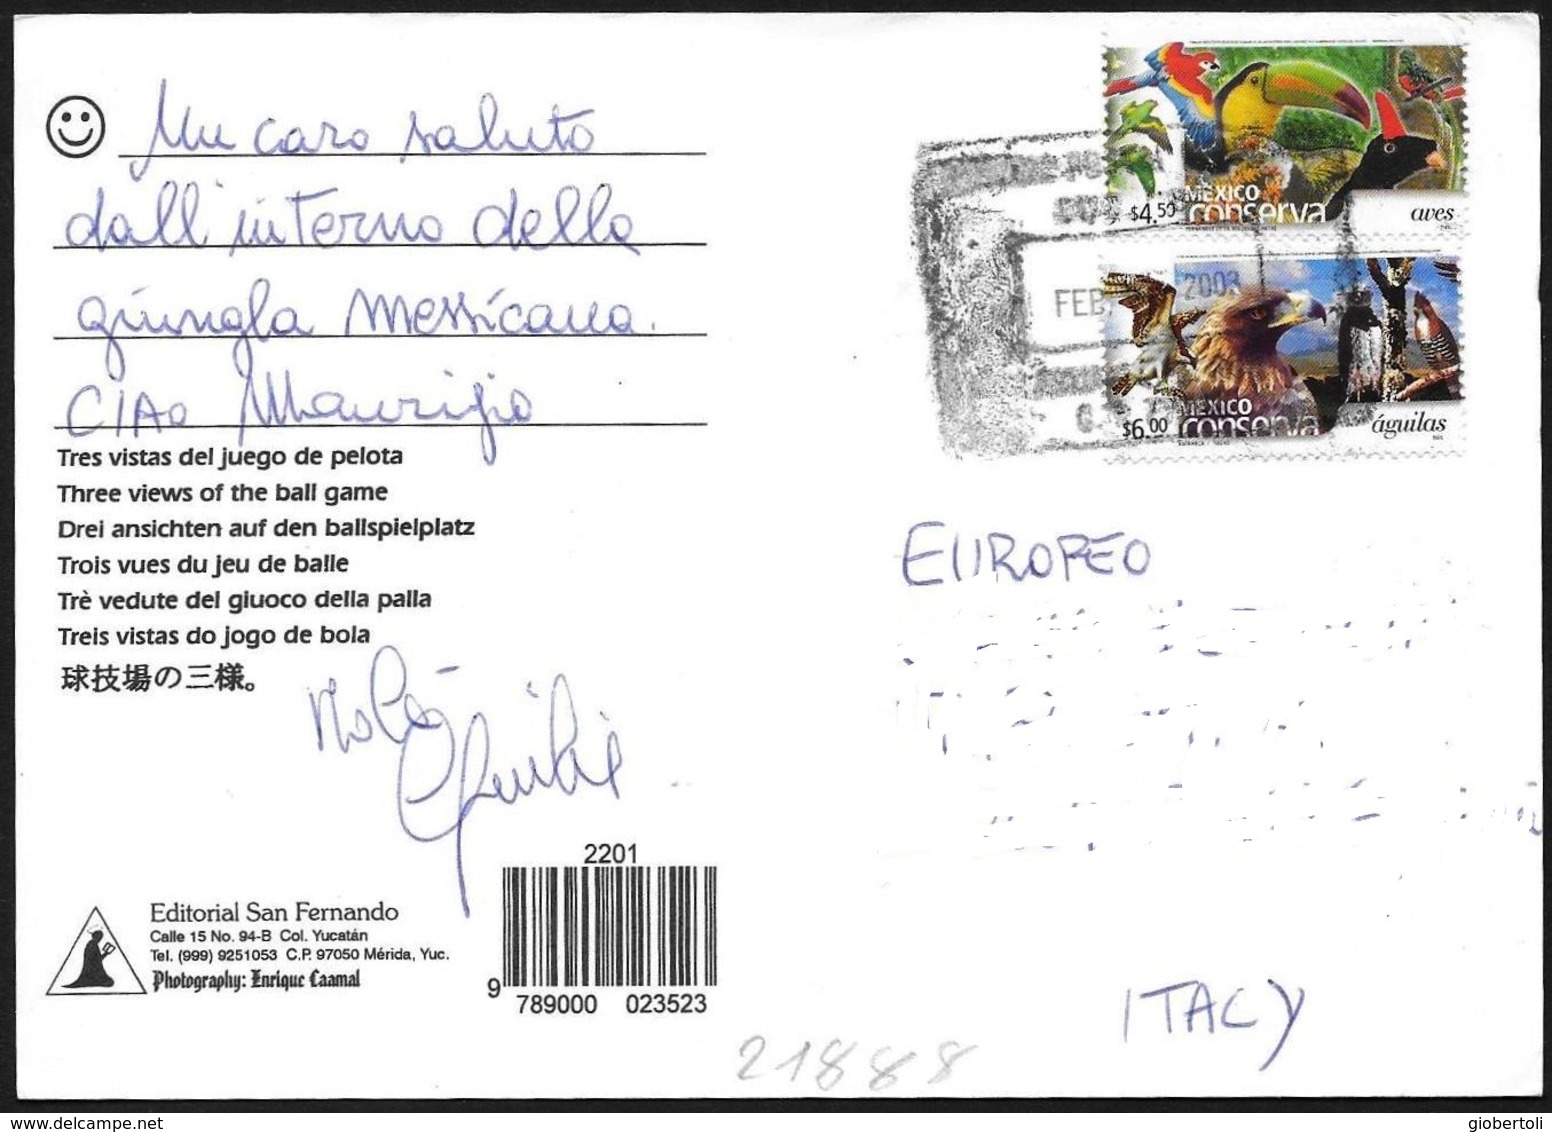 Un caro saluto
dall'interno della
giungla messicana.
CIAO Maurizio
Tres vistas del juego de pelota
Three views of the ball game
Drei ansichten auf den ballspielplatz
Trois vues du jeu de balle
Trè vedute del giuoco della palla
Treis vistas do jogo de bola
球技場の三様。
2201
9 789000 023523
Editorial San Fernando
Calle 15 No. 94-B Col. Yucatán
Tel. (999) 9251053 C.P. 97050 Mérida, Yuc.
Photography: Enrique Caamal
MEXICO
$4.50 conserva
aves
FEB 2003
MEXICO
$6.00 conserva
águilas
EUROPEO
ITALY
21888
www.delcampe.net
giobertoli